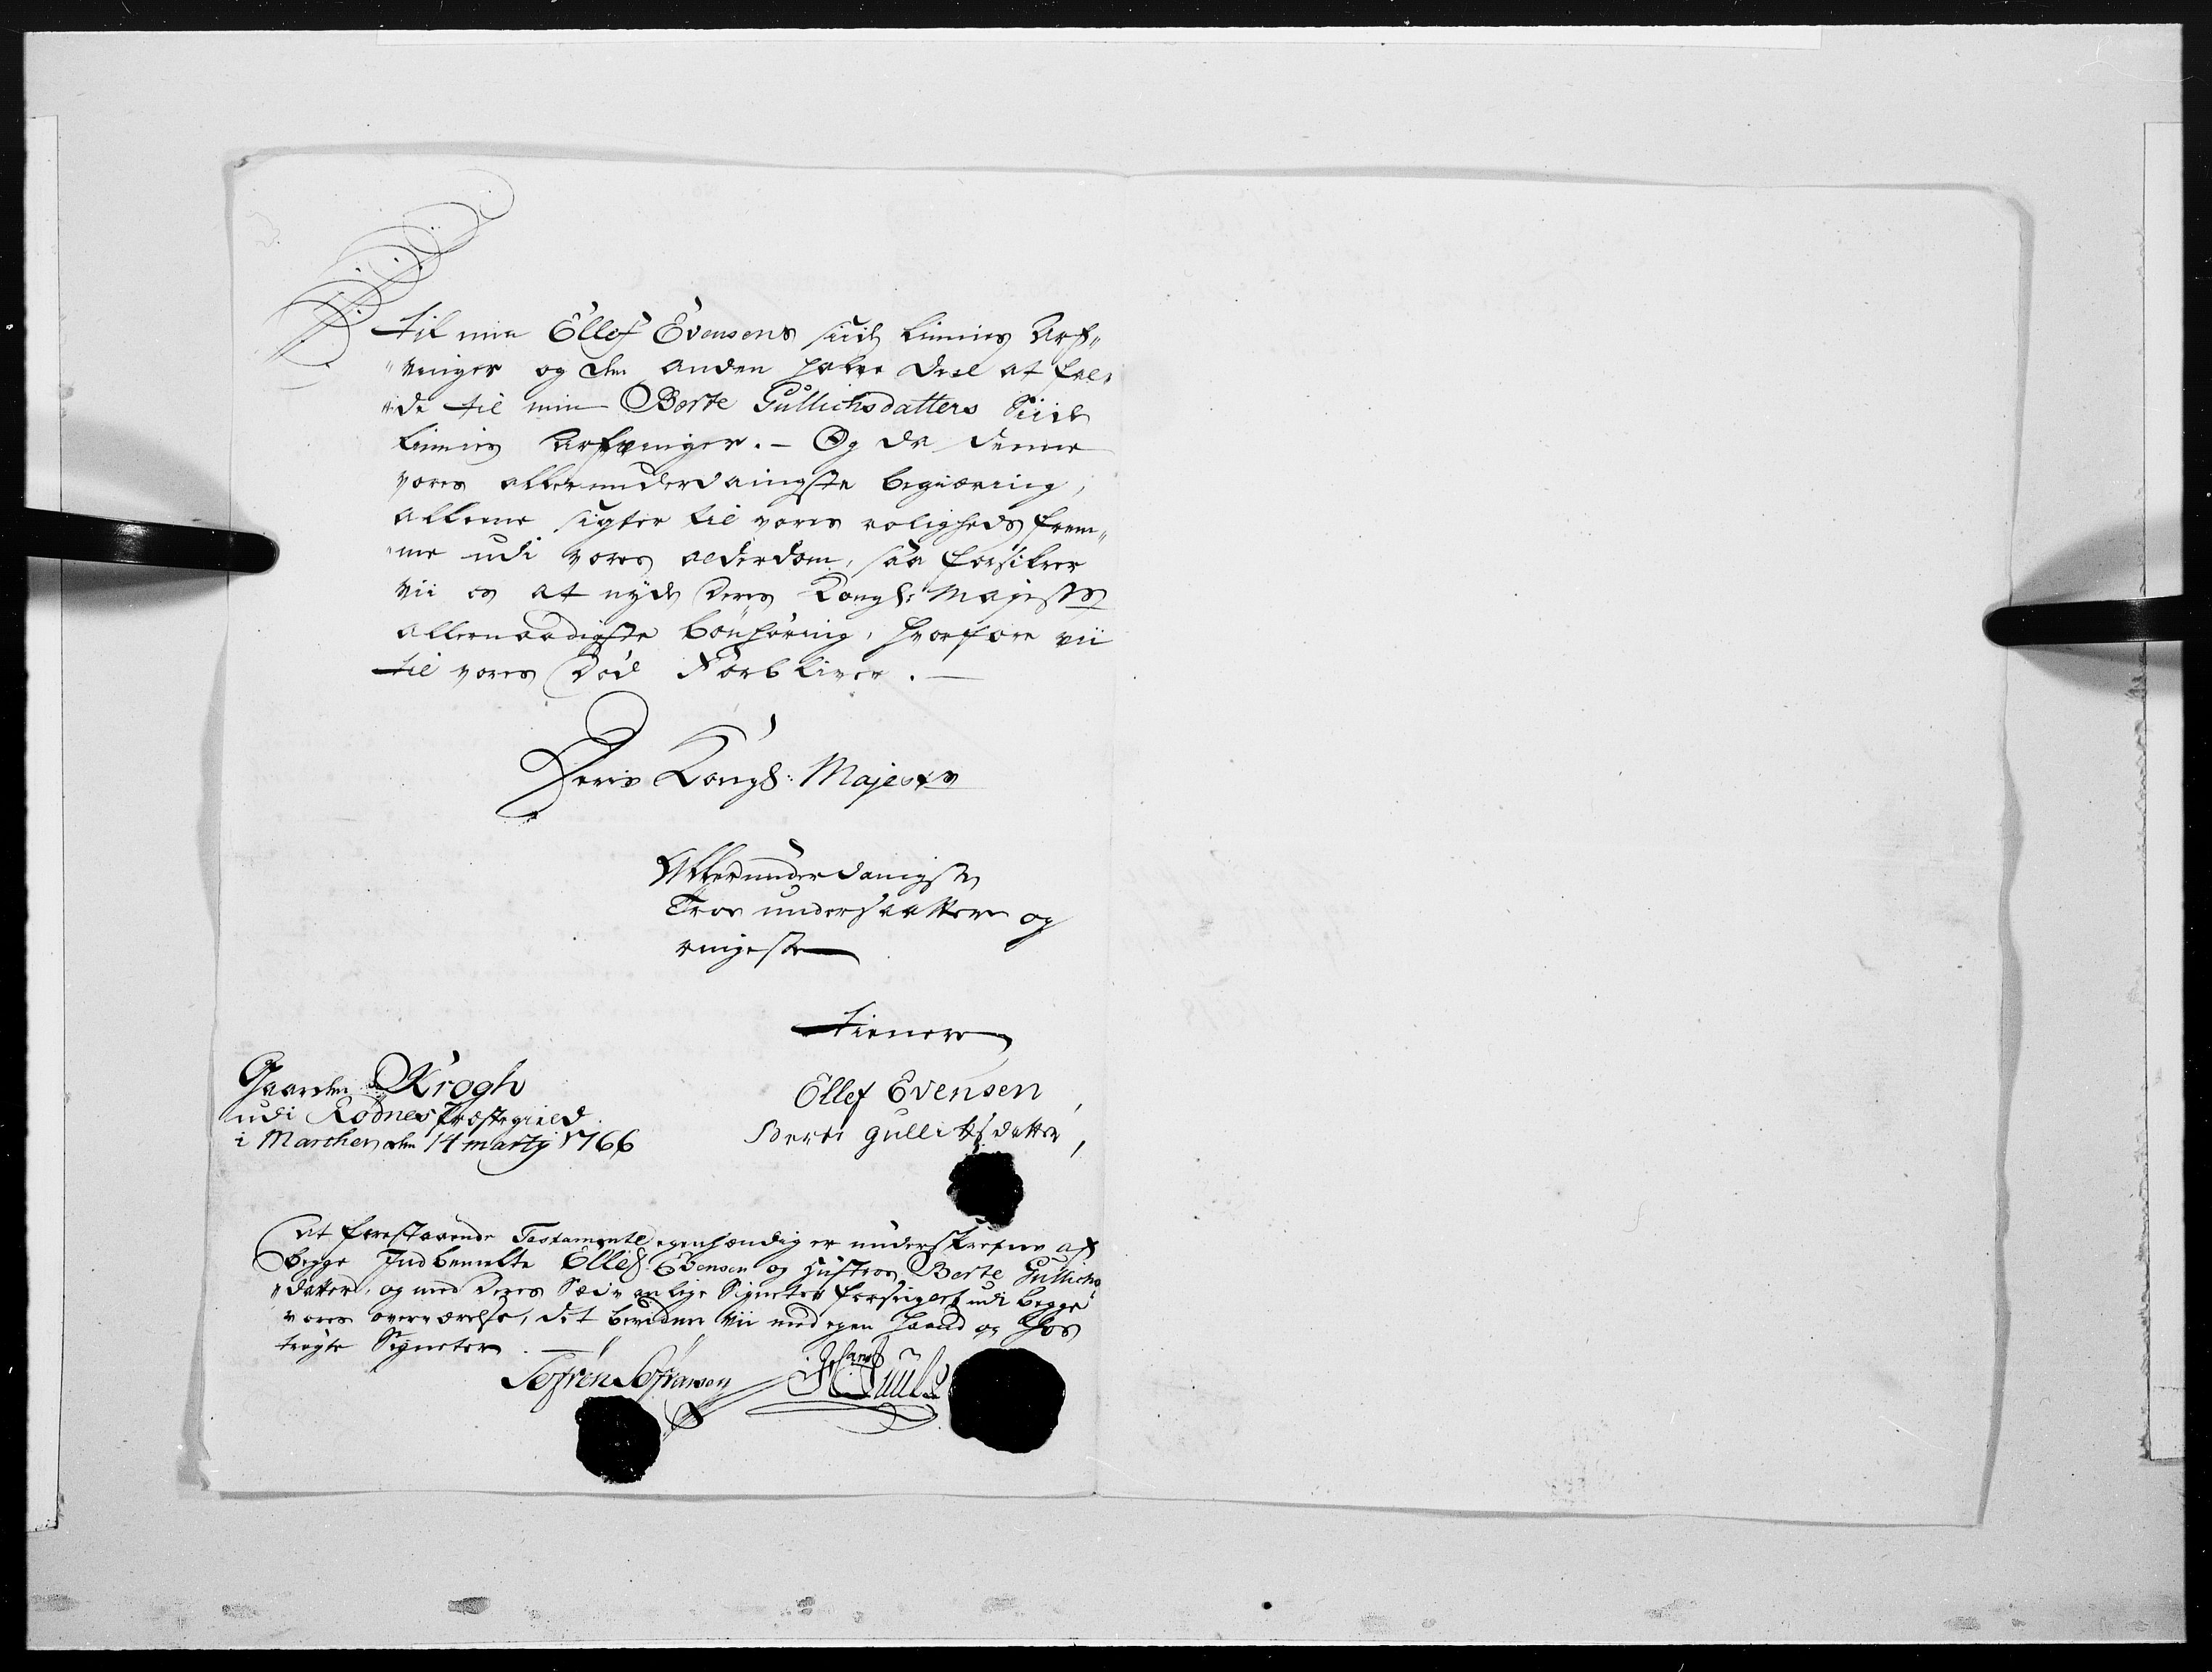 til min Ellef Evensens siid linnies Arf„
„vinger og den anden halve Deel at fal„
„de til min Berte Gullichsdatters Siid
linnies Arfvinger. – Og da denne
vores allerunderdanigste begiæring,
alleene sigter til vores roligheds frem„
„me udi vores alderdom, saa forsikrer
vii os at nyde Deres Kongl: Majests
allernaadigste bönhöring, hvorfore vii
til vores Död Forbliver. —
Deris Kongl: Majests
Allerunderdanigste
Troe undersaatter og
ringeste
tienere
Gaarden Krogh
udi Rödnes Præstegield
i Marcher den 14 martij 1766
Ellef Evensen
Berte gulliksdatter
At forestaaende Testamente egenhændig er underskrefvne af
begge Indbemelte Ellef Evensen og Hustroe Berte Gullichs
„datter, og med Deres Sædvanlige Signeter forseiglet udi begge
vores overværelse, det bevidner Vii med egen Haand og hos
trögte Signeter. —
Söfren Söfrensen
Juul